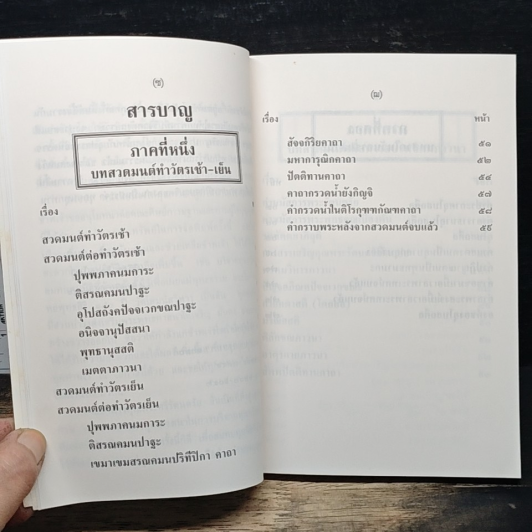 (ซ)
สารบาญ
ภาคที่หนึ่ง
บทสวดมนต์ทำวัตรเช้า-เย็น
เรื่อง
สวดมนต์ทำวัตรเช้า
สวดมนต์ต่อทำวัตรเช้า
ปุพพภาคนมการะ
ติสรณคมนปาฐะ
อุโปสถังคปัจจเวกขณปาฐะ
อนิจจานุปัสสนา
พุทธานุสสติ
เมตตาภาวนา
สวดมนต์ทำวัตรเย็น
สวดมนต์ต่อทำวัตรเย็น
ปุพพภาคนมการะ
ติสรณคมนปาฐะ
เขมาเขมสรณคมนปริทีปิกา คาถา
(ฌ)
เรื่อง หน้า
สัจจกิริยคาถา ๕๑
มหาการุณิกคาถา ๕๒
ปัตติทานคาถา ๕๔
คาถากรวดน้ำยังกิญจิ ๕๗
คำกรวดน้ำในติโรกุฑฑกัณฑคาถา ๕๘
คำกราบพระหลังจากสวดมนต์จบแล้ว ๕๙